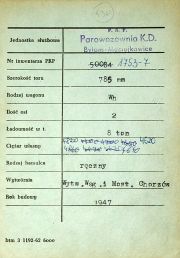 P. K. P.
Jednostka służbowa Parowozownia K.D.
Bytom-Maciejkowice
Nr inwentarza PKP 1753-7
Szerokość toru 785 mm
Rodzaj wagonu Wh
Ilość osi 2
Ładowność w t. 8 ton
Ciężar własny 4620
Rodzaj hamulca ręczny
Wytwórnia Wytw. Wag. i Most. Chorzów
Rok budowy 1947